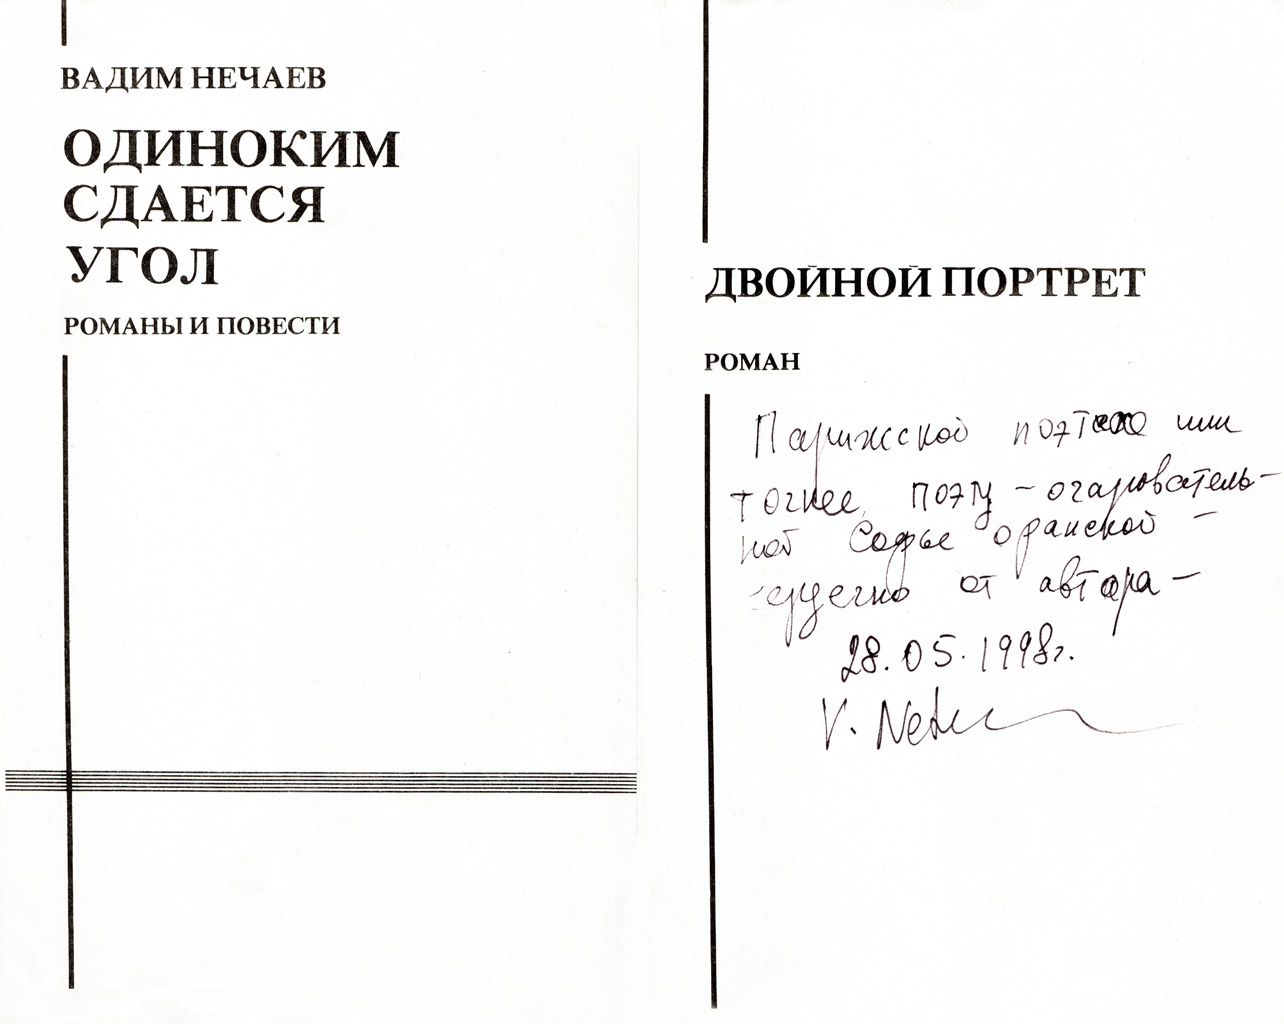 ВАДИМ НЕЧАЕВ
ОДИНОКИМ
СДАЕТСЯ
УГОЛ
РОМАНЫ И ПОВЕСТИ
ДВОЙНОЙ ПОРТРЕТ
РОМАН
Парижской или
точнее, поэту – очарователь-
ной Софье Оранской –
сердечно от автора –
28.05.1998г.
V.